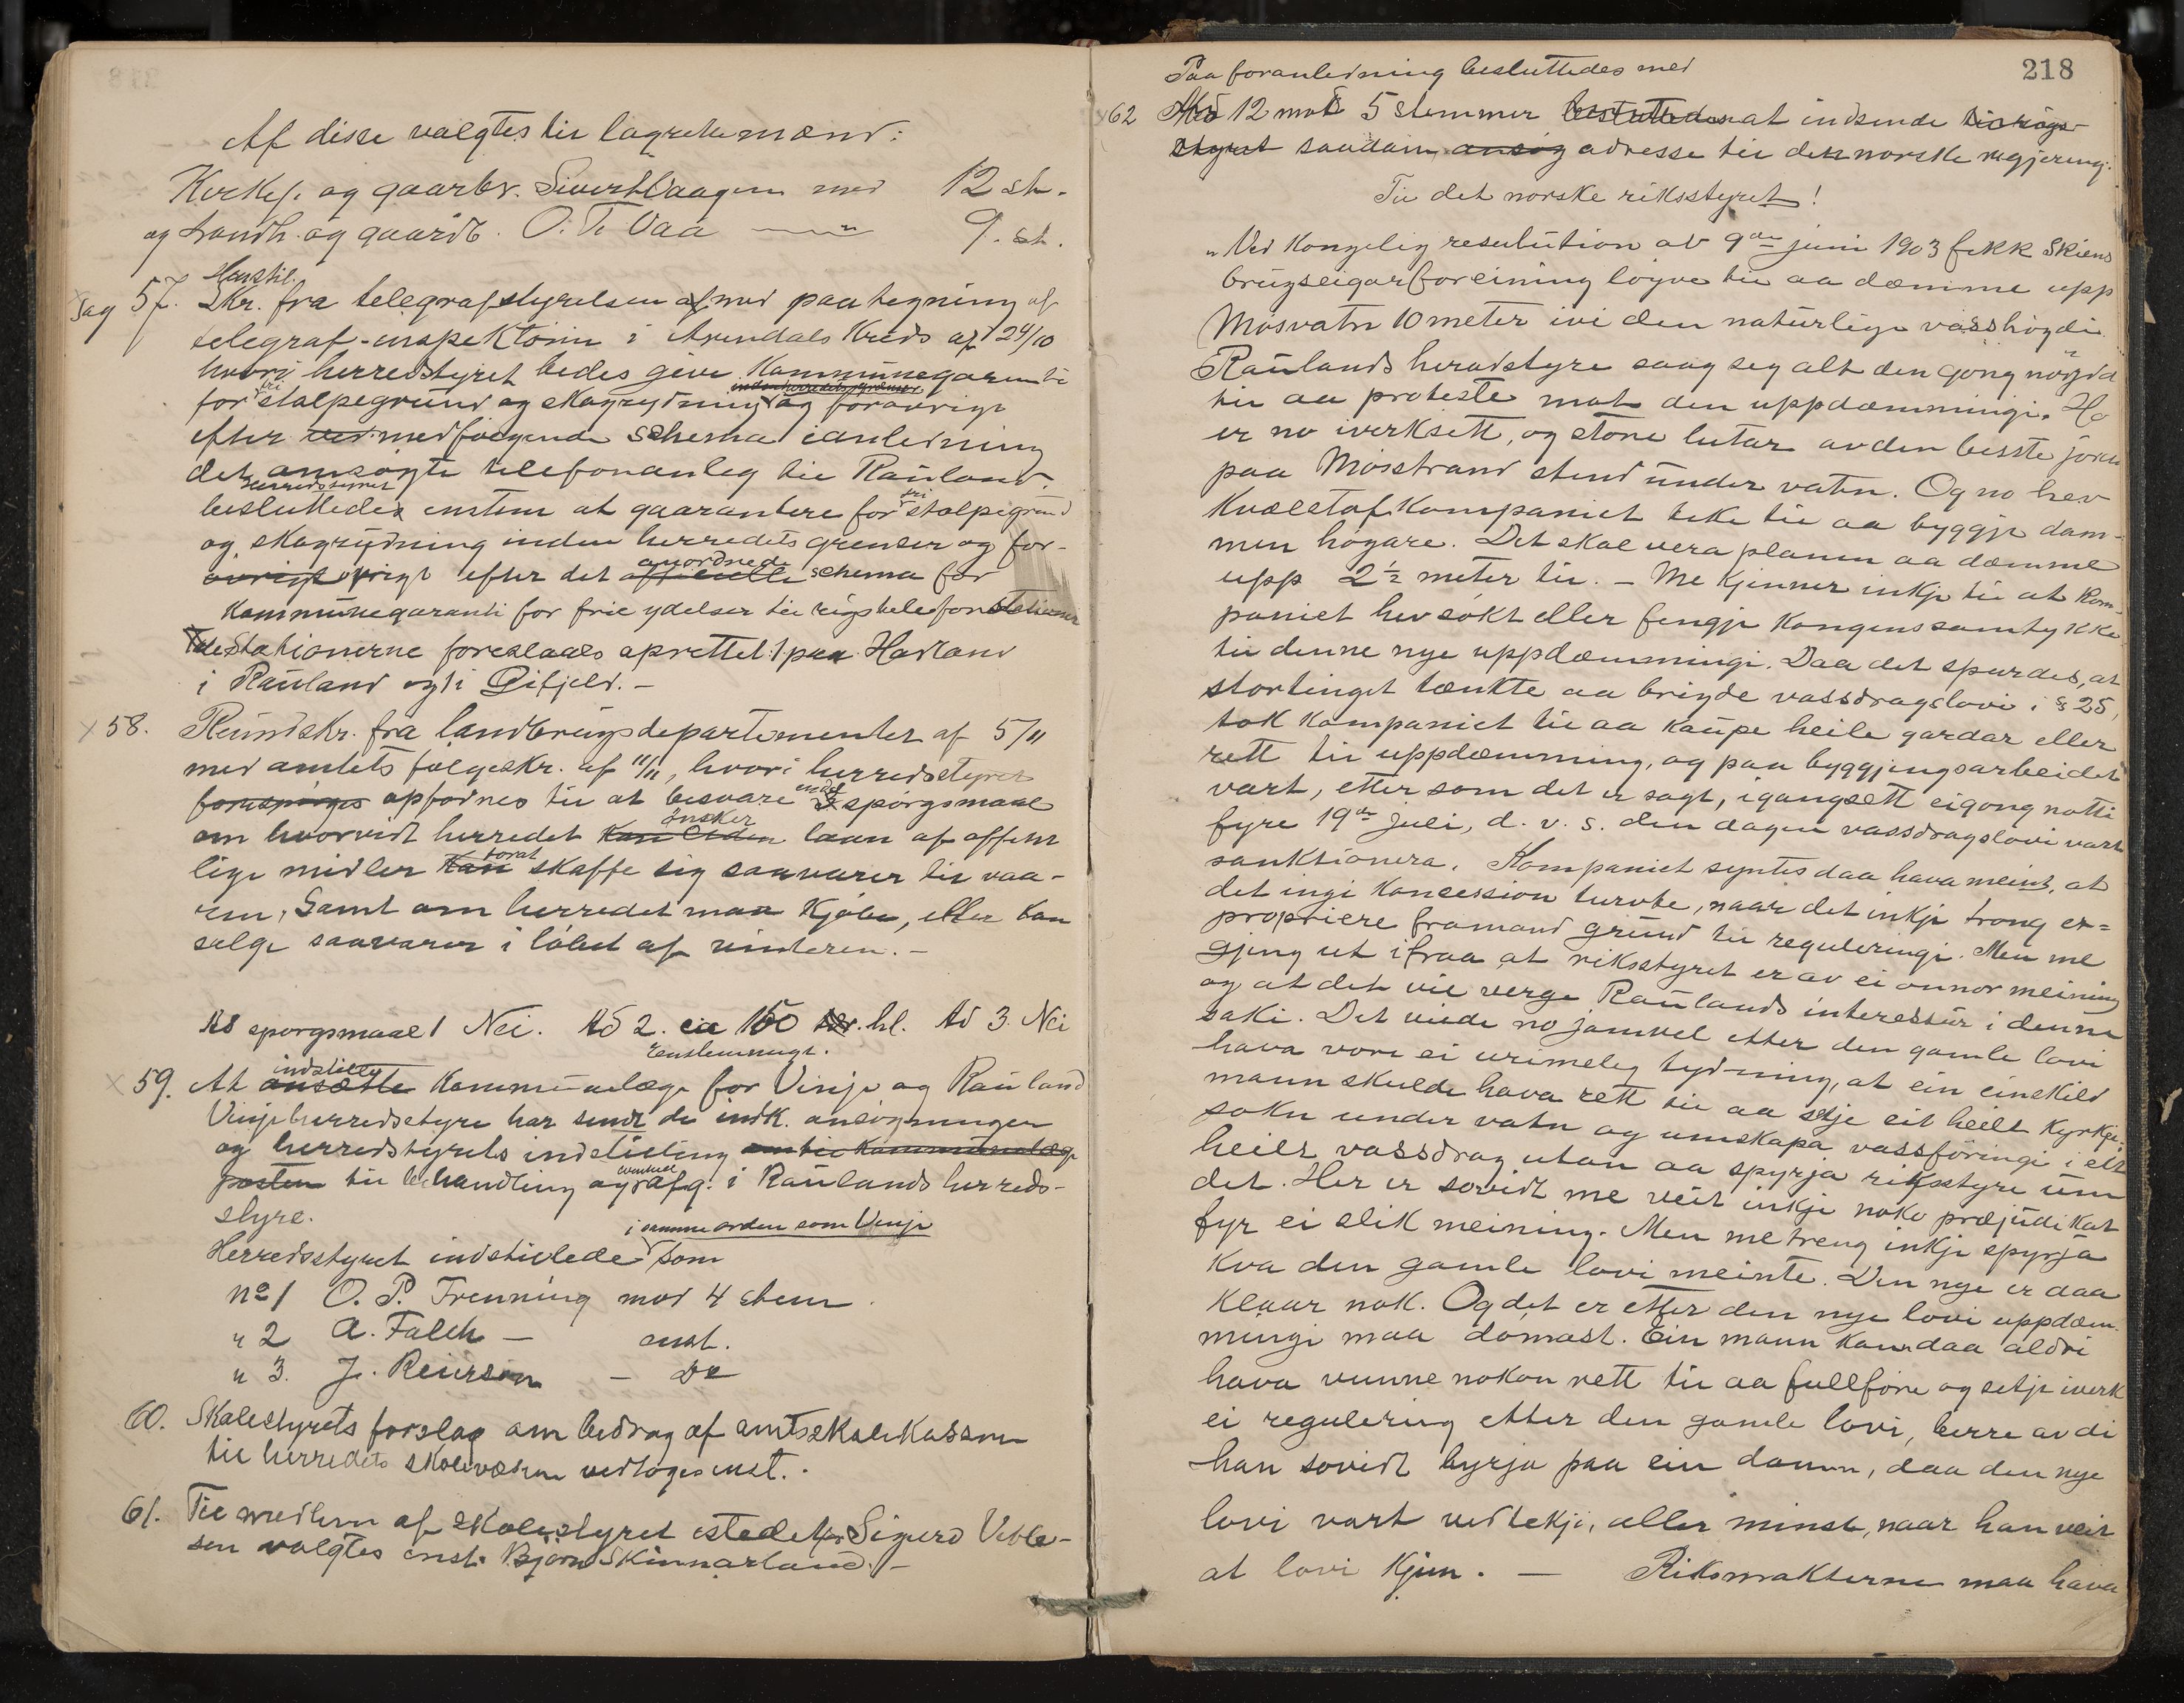 Af disse valgtes til lagrettemænd:
Kirkes. og gaarbr. Sivert Vaagen med 12 st.
og Landh. og gaardb. O. T. Vaa —"— 9. st.
Sag 57. Skr. fra telegrafstyrelsen af med paategning af
telegraf-inspektøren i Arendals Kreds af 24/10
hvori herredstyret bedes give Kommunegaranti
for fri stolpegrund og skogrydning inden herredets grænser og forøvrigt
efter ved medfølgende schema i anledning
det ansøgte telefonanleg til Rauland.
herredsstyret
besluttedes enstem at gaarantere for fri stolpegrund
og skogrydning inden herredets grenser og for-
øvrigt øvrigt efter det officielle anordnede schema for
Kommunegaranti for frie ydelser til rigstelefonstationer
De Stationerne foreslaaes oprettet: 1 paa Hadland
i Rauland og 1 i Øifjeld. –
58. Rundskr. fra landbrugsdepartementet af 5/11
med amtets følgeskr. af 11/11, hvori herredstyret
forespørges opfordres til at besvare endel 3 spørgsmaal
om hvorvidt herredet kan uden ønsker laan af offent
lige midler kan forat skaffe sig saavarer til vaa-
ren, Samt om herredet maa Kjøbe, eller kan
selge saavarer i løbet af vinteren. –
Ad spørgsmaal 1 Nei. Ad 2. ca 150 hl. Ad 3. Nei
Enstemmigt.
59. At ansætte indstille Kommunelæge for Vinje og Rauland
Vinje herredsstyre har sendt de indk. ansøgninger
og herredstyrets indstilling om til Kommunelæge
posten til behandling og eventuel afg. i Raulands herreds-
styre.
i samme orden som Vinje
Herredsstyret indstillede som
No 1 O. P. Frenning mod 4 stem.
" 2 A. Falch – enst.
" 3. J. Reierson – Do
60. Skolestyrets forslag om bidrag af amtsskolekassen
til herredets skolevæsen vedtoges enst. .
61. Til medlem af skolestyret istedetfor Sigurd Veble-
sen valgtes enst. Bjørn Skinnarland. –
218
Paa foranledning besluttedes med
62 Med 12 mod 5 stemmer besluttedes at indsende til rigs-
styret saadan ansøg adresse til den norske regjering:
Til det norske riksstyret!
"Ved Kongelig resolution av 9de juni 1903 fekk Skiens
brugseigarforeining løyve til aa dæmme upp
Møsvatn 10 meter ivi den naturlige vasshøgdi.
Raulands heradstyre saag seg alt den gong nøydd
til aa proteste mot den uppdæmmingi. Ho
er no iverksett, og store lutar av den besste jordi
paa Møsstrand stend under vatn. Og no hev
Kvællstof Kompaniet teke til aa byggje dam-
men høgare. Det skal vera planen aa dæmme
upp 2½ meter til. – Me kjenner inkje til at Kom-
paniet hev søkt eller fengje Kongens samtykke
til denne nye uppdæmmingi. Daa det spurdes, at
stortinget tænkte aa brigde vassdragslovi i § 25,
tok kompaniet til aa kaupe heile gardar eller
rett til uppdæmming, og paa byggjingsarbeidet
vart, etter som det er sagt, igangsett eigong notti
fyre 19de juli, d. v. s. den dagen vassdragslovi vart
sanktionera. Kompaniet syntes daa hava meint, at
det ingi Koncession turvte, naar det inkje trong ex=
propriere framand grund til reguleringi. Men me
gjeng ut ifraa at riksstyret er av ei onnor meining
og at det vil verge Raulands interessur i denne
saki. Det vilde no jamvel etter den gamle lovi
hava vore ei urimeleg tydning, at ein einskild
mann skulde hava rett til aa setje eit heilt kyrkje-
sokn under vatn og umskapa vassføringi i eit
heilt vassdrag utan aa spyrja riksstyre um
det. Her er sovidt me veit inkje noko præjudikat
fyr ei slik meining. Men me treng inkje spyrja
kva den gamle lovi meinte. Den nye er daa
klaar nok. Og det er etter den nye lovi uppdæm-
mingi maa dømast. Ein mann kan daa aldri
hava vunne nokon rett til aa fullføre og setje iverk
ei regulering etter den gamle lovi, berre av di
han sovidt byrja paa ein damm, daa den nye
lovi vart vedtekji, aller minst, naar han veit
at lovi kjem. — Riksmakterne maa hava